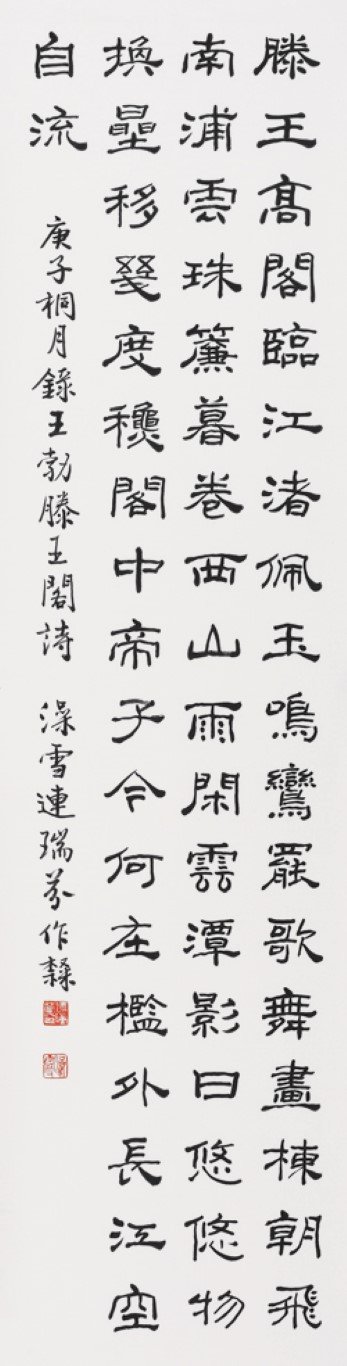 滕王髙閣臨江渚佩玉鳴鸞罷歌舞畫棟朝飛
南浦雲珠簾暮卷西山雨閑雲潭影日悠悠物
換星移幾度穐閣中帝子今何在檻外長江空
自流
庚子桐月錄王勃滕王閣詩 澡雪連瑞芬作隸